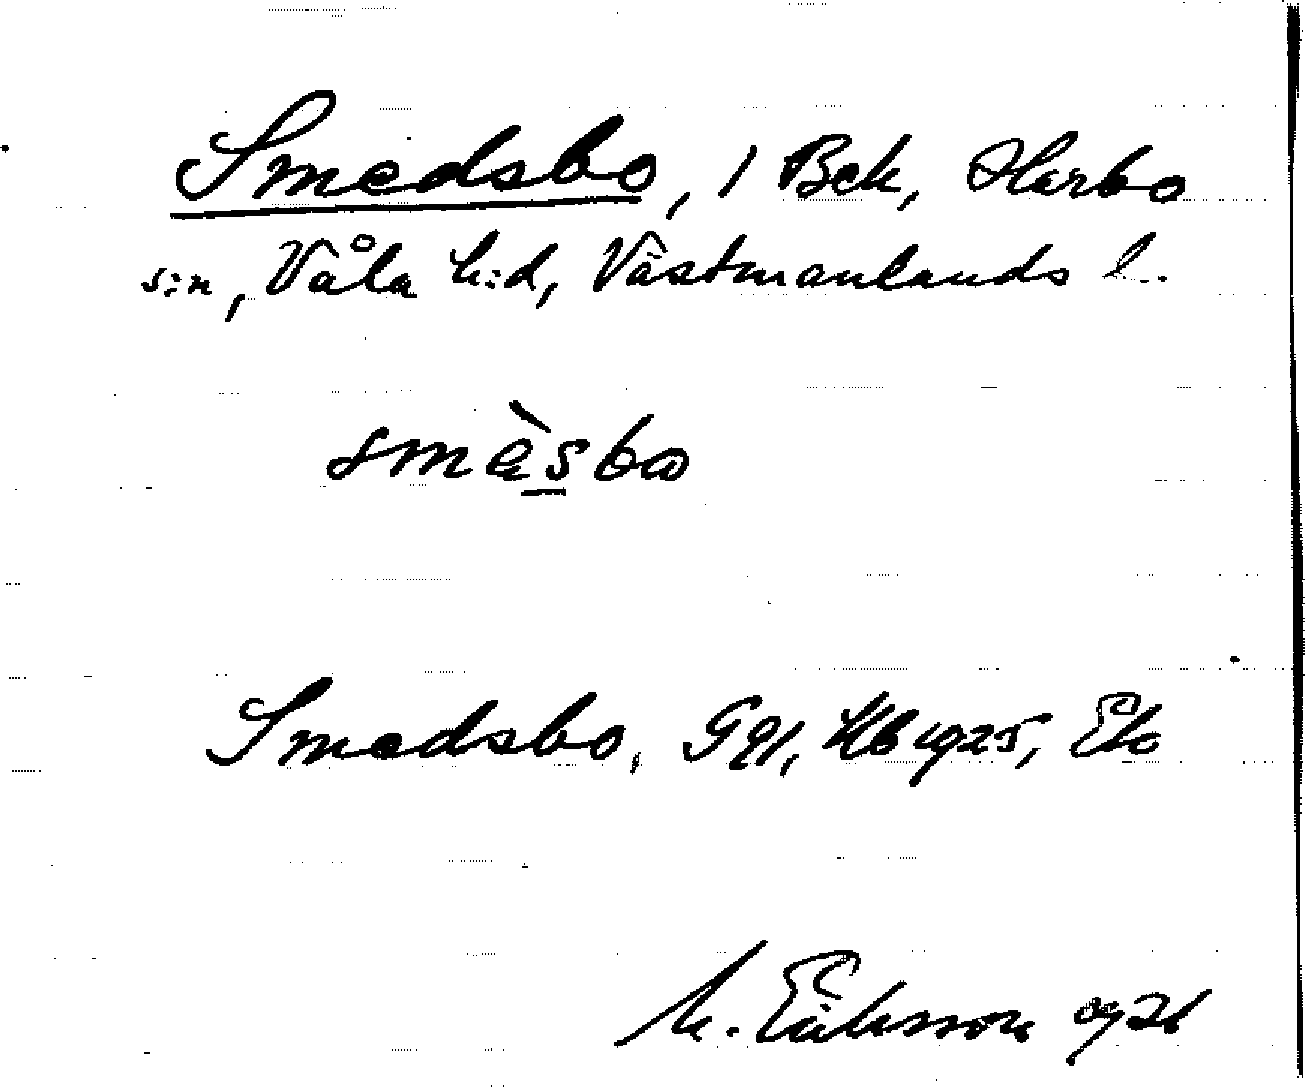 Smedsbo, 1 Bek, Harbo
s:n, Våla h:d, Västmanlands l.
smèsbo
Smedsbo, G 91, Kb 1925, Ek
M. Eriksson 1926